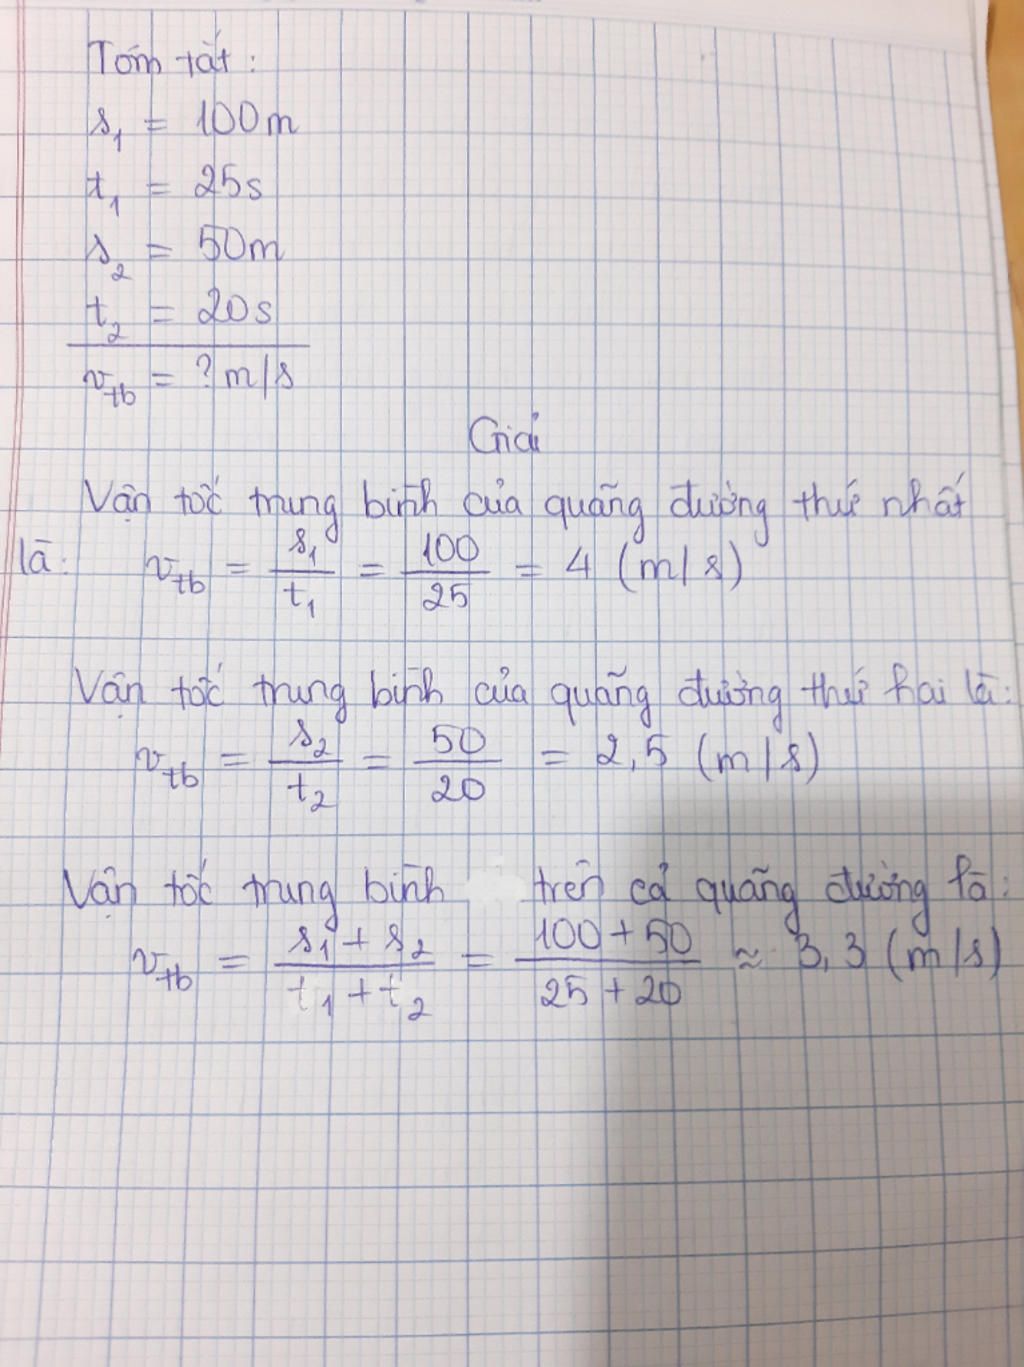 Tóm tắt:
s₁ = 100m
t₁ = 25s
s₂ = 50m
t₂ = 20s
v_tb = ? m/s
Giải
Vận tốc trung bình của quãng đường thứ nhất
là: v_tb = s₁/t₁ = 100/25 = 4 (m/s)
Vận tốc trung bình của quãng đường thứ hai là:
v_tb = s₂/t₂ = 50/20 = 2,5 (m/s)
Vận tốc trung bình trên cả quãng đường là:
v_tb = (s₁ + s₂)/(t₁ + t₂) = (100 + 50)/(25 + 20) ≈ 3,3 (m/s)